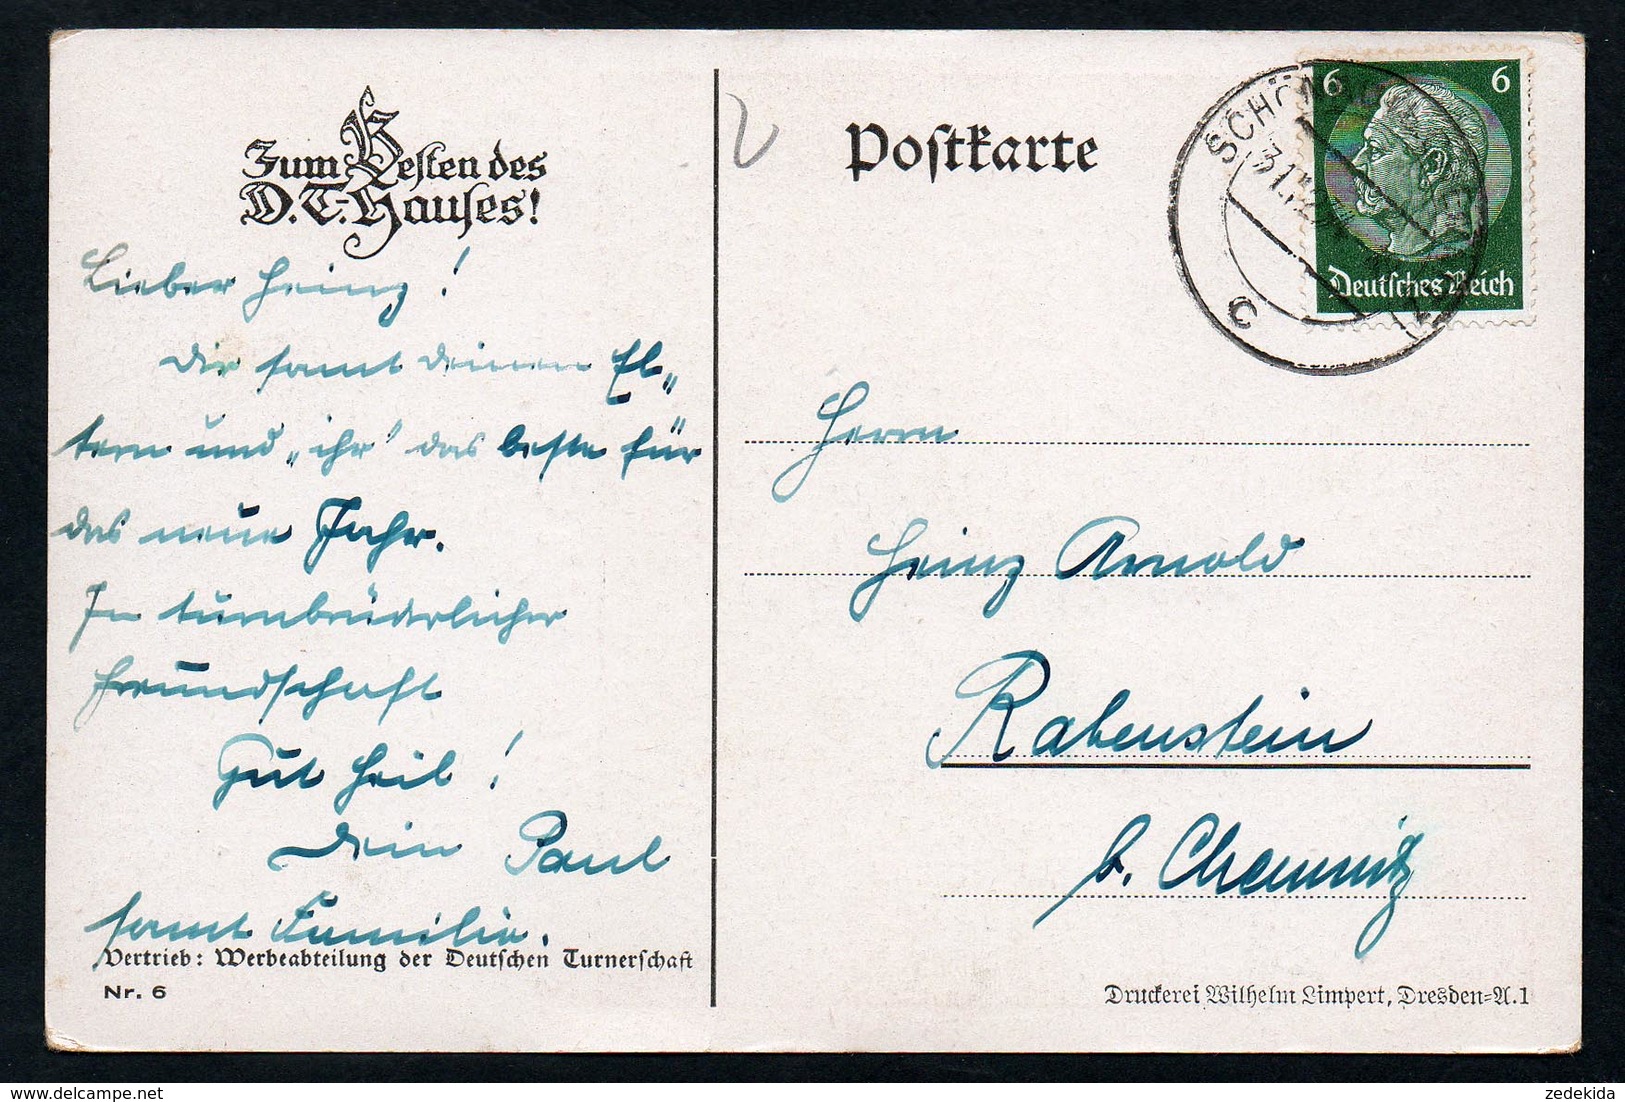 Zum Besten des
D.T.-Hauses!
Lieber Heinz!
Dir samt deinen El„
tern und „ihr“ das beste für
das neue Jahr.
In turnbrüderlicher
Freundschaft
Gut Heil!
Dein Paul
samt Familie.
Vertrieb: Werbeabteilung der Deutschen Turnerschaft
Nr. 6
Postkarte
6 6
Deutsches Reich
31.12.
c
Herrn
Heinz Arnold
Rabenstein
b. Chemnitz
Druckerei Wilhelm Limpert, Dresden-A.1
zedekida